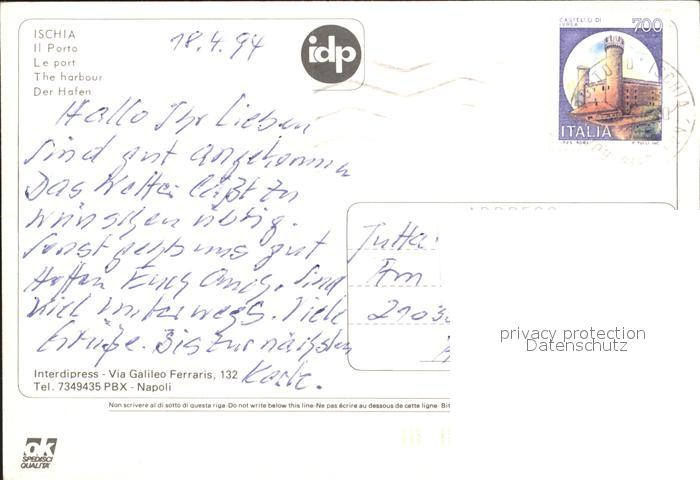 ISCHIA
Il Porto
Le port
The harbour
Der Hafen
18.4.94
idp
CASTELLO DI
IVREA
700
ITALIA
Hallo Ihr Lieben
Sind gut angekommen
Das Wetter läßt zu
wünschen übrig.
Sonst geht's uns gut
Hoffen Euch auch. Sind
viel unterwegs. Viele
Grüße. Bis zur nächsten
Karte.
Jutta
Am
2103
privacy protection
Datenschutz
Interdipress - Via Galileo Ferraris, 132
Tel. 7349435 PBX - Napoli
Non scrivere al di sotto di questa riga-Do not write below this line-Ne pas écrire au dessous de cette ligne- Bit
ok
SPEDISCI
QUALITA'